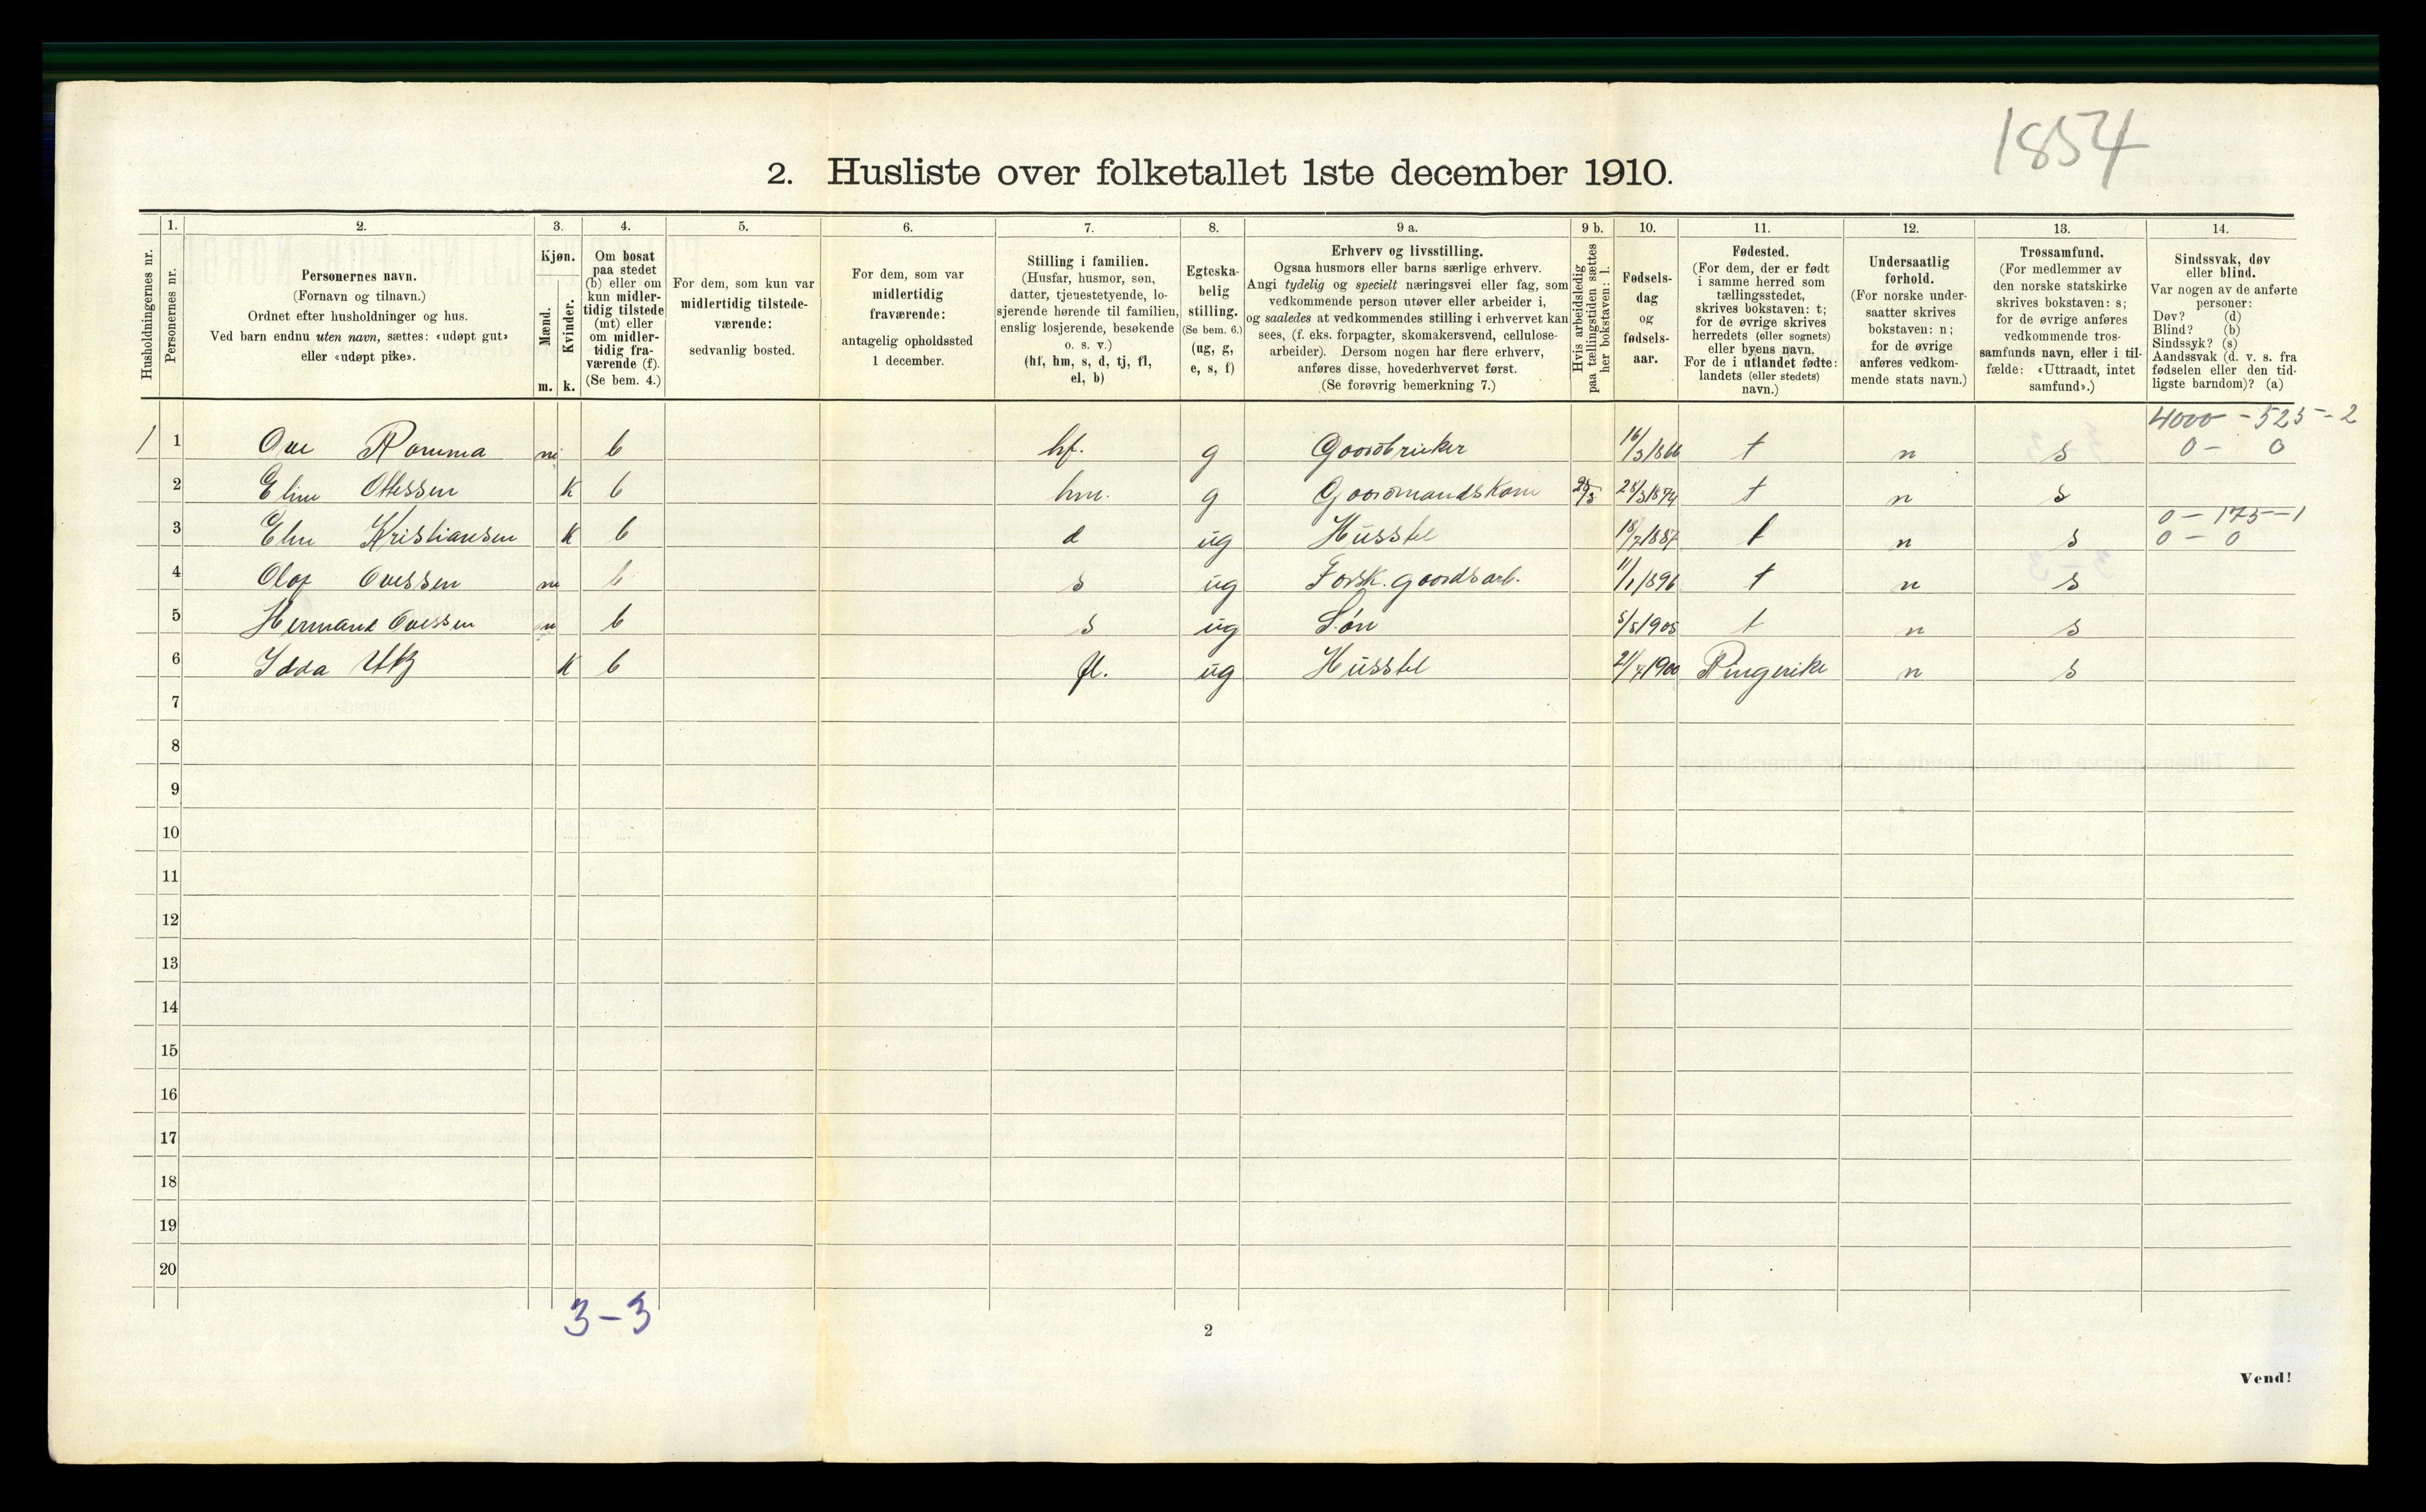 1854
2. Husliste over folketallet 1ste december 1910.
Husholdningernes nr.
1.
Personernes nr.
2.
Personernes navn.
(Fornavn og tilnavn.)
Ordnet efter husholdninger og hus.
Ved barn endnu uten navn, sættes: «udøpt gut»
eller «udøpt pike».
3.
Kjøn.
Mænd.
Kvinder.
m. k.
4.
Om bosat
paa stedet
(b) eller om
kun midler-
tidig tilstede
(mt) eller
om midler-
tidig fra-
værende (f).
(Se bem. 4.)
5.
For dem, som kun var
midlertidig tilstede-
værende:
sedvanlig bosted.
6.
For dem, som var
midlertidig
fraværende:
antagelig opholdssted
1 december.
7.
Stilling i familien.
(Husfar, husmor, søn,
datter, tjenestetyende, lo-
sjerende hørende til familien,
enslig losjerende, besøkende
o. s. v.)
(hf, hm, s, d, tj, fl,
el, b)
8.
Egteska-
belig
stilling.
(Se bem. 6.)
(ug, g,
e, s, f)
9 a.
Erhverv og livsstilling.
Ogsaa husmors eller barns særlige erhverv.
Angi tydelig og specielt næringsvei eller fag, som
vedkommende person utøver eller arbeider i,
og saaledes at vedkommendes stilling i erhvervet kan
sees, (f. eks. forpagter, skomakersvend, cellulose-
arbeider). Dersom nogen har flere erhverv,
anføres disse, hovederhvervet først.
(Se forøvrig bemerkning 7.)
9 b.
Hvis arbeidsledig
paa tællingstiden sættes
her bokstaven: l.
10.
Fødsels-
dag
og
fødsels-
aar.
11.
Fødested.
(For dem, der er født
i samme herred som
tællingsstedet,
skrives bokstaven: t;
for de øvrige skrives
herredets (eller sognets)
eller byens navn.
For de i utlandet fødte:
landets (eller stedets)
navn.)
12.
Undersaatlig
forhold.
(For norske under-
saatter skrives
bokstaven: n;
for de øvrige
anføres vedkom-
mende stats navn.)
13.
Trossamfund.
(For medlemmer av
den norske statskirke
skrives bokstaven: s;
for de øvrige anføres
vedkommende tros-
samfunds navn, eller i til-
fælde: «Uttraadt, intet
samfund».)
14.
Sindssvak, døv
eller blind.
Var nogen av de anførte
personer:
Døv? (d)
Blind? (b)
Sindssyk? (s)
Aandssvak (d. v. s. fra
fødselen eller den tid-
ligste barndom)? (a)
4000 - 525 - 2
1 1 Ove Romma m b hf. g Goordbruker 16/3 1866 t n s 0 - 0
2 Eline Ottessen k b hm. g Goordmandskone 28/3 1874 t n s
0 - 175 - 1
3 Elen Kristiansen k b d ug Husstel 18/7 1887 t n s 0 - 0
4 Olaf Ovessen m b s ug Forsk. goordsarb. 11/1 1896 t n s
5 Hermand Ovessen m b s ug Søn 5/5 1905 t n s
6 Idda k b fl. ug Husstel 21/7 1900 Ringerike n s
7
8
9
10
11
12
13
14
15
16
17
18
19
20
3-3
2
Vend!